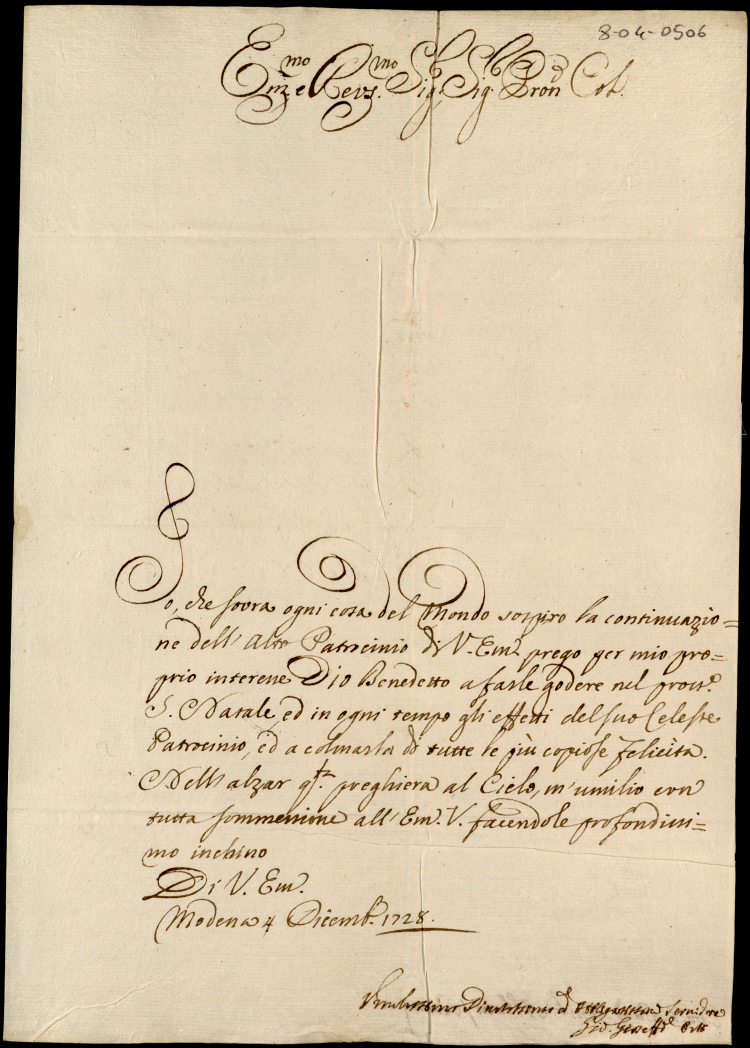 8-04-0506
Em̃o e Rev.mo Sig.r Sig.r Pron Col.
Io, che sovra ogni cosa del Mondo sospiro la continuazio=
ne dell' Alto Patrocinio di V. Em.a prego per mio pro=
prio interesse Dio Benedetto a farle godere nel pross.o
S. Natale, ed in ogni tempo gli effetti del suo Celeste
Patrocinio, ed a colmarla di tutte le più copiose felicità.
Nell' alzar q.ta preghiera al Cielo, m' umilio con
tutta sommessione all' Em. V. facendole profondissi=
mo inchino
Di V. Em.
Modena 4 Dicemb. 1728.
Umilissimo Divotissimo ed Servidore
Gioseffo